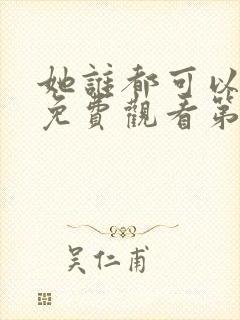 她誰都可以
免費觀看第
吳仁甫